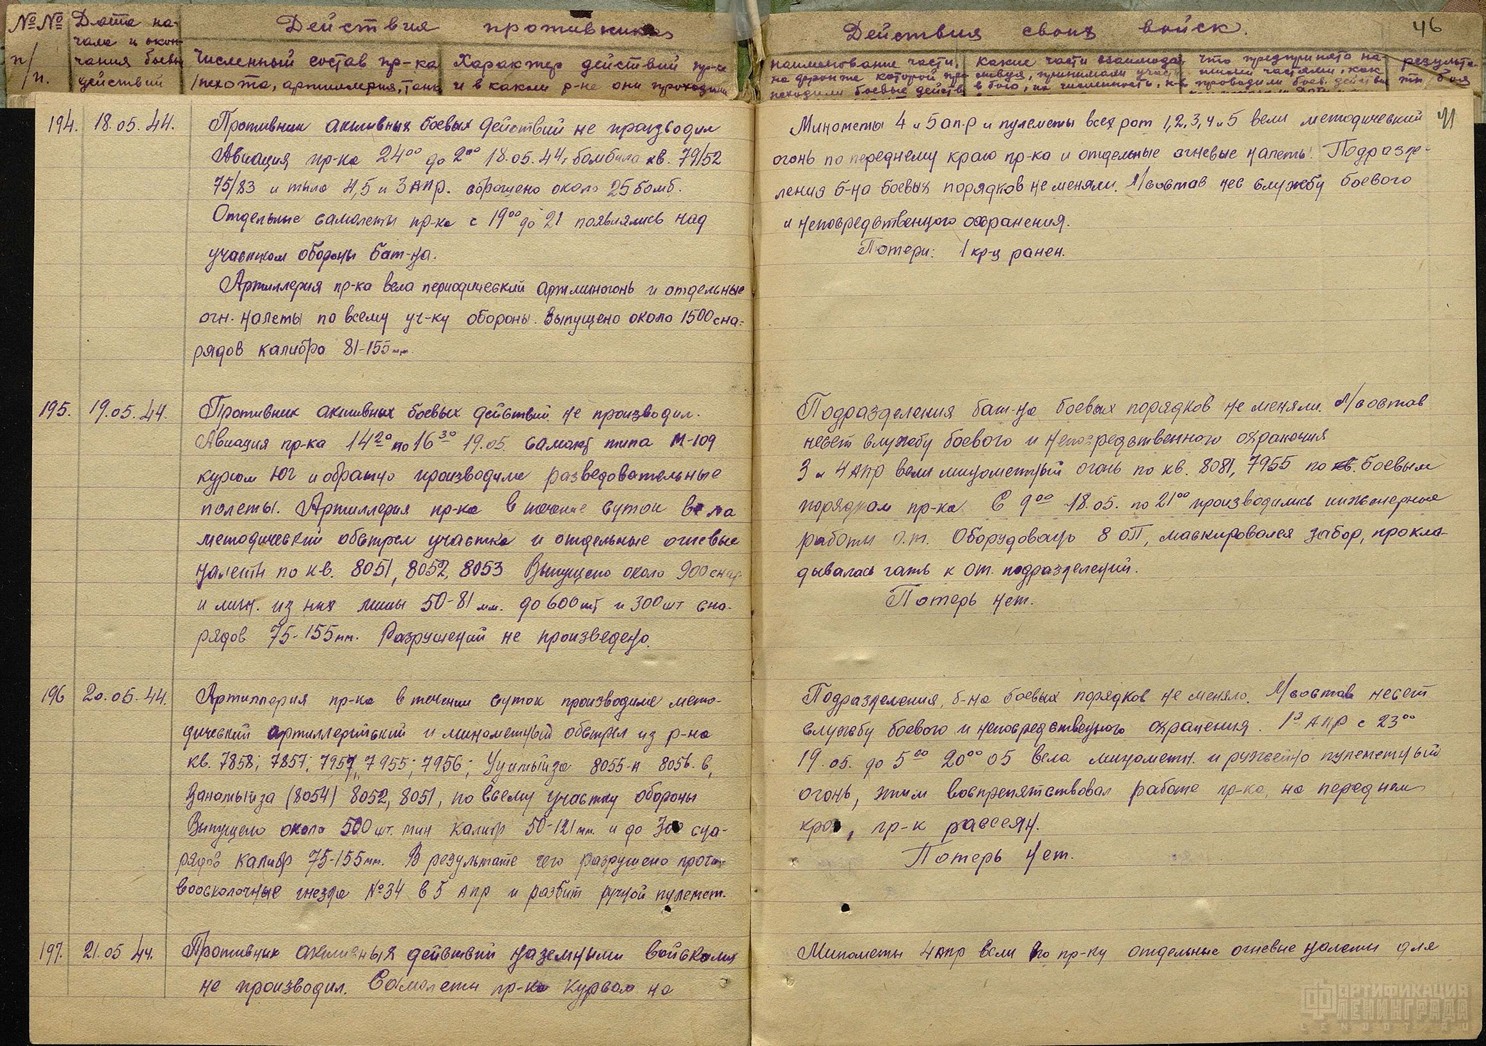 №№ п/п.
Дата на-
чала и окон-
чания боевы
действий
Действия противника
Численный состав пр-ка
/пехота, артиллерия, тан
Характер действий пр-ка
и в каком р-не они проходили
Действия своих войск.
46
наименование части,
на фронте которой
какие части взаимодей
ствуя, принимали участ
в бою, их численность,
что предпринято на-
шими частями, как
проводили боев. действ
результа-
ты боя
194.
18.05.44.
Противник активных боевых действий не производил
Авиация пр-ка 24⁰⁰ до 2⁰⁰ 18.05.44, бомбила кв. 79/52
75/83 и тыла 4,5 и 3 АПР. сброшено около 25 бомб.
Отдельные самолеты пр-ка с 19⁰⁰ до 21 появлялись над
участком обороны бат-на.
Артиллерия пр-ка вела периодический артминогонь и отдельные
огн. налеты по всему уч-ку обороны. Выпущено около 1500 сна-
рядов калибра 81-155 мм.
Минометы 4 и 5 апр и пулеметы всех рот 1,2,3,4 и 5 вели методический
огонь по переднему краю пр-ка и отдельные огневые налеты. Подразде-
ления б-на боевых порядков не меняли. Л/состав нес службу боевого
и непосредственного охранения.
Потери: 1 кр-ц ранен.
195.
19.05.44.
Противник активных боевых действий не производил.
Авиация пр-ка 14²⁰ по 16³⁰ 19.05 самолет типа М-109
курсом Юг и обратно производили разведовательные
полеты. Артиллерия пр-ка в течение суток вела
методический обстрел участка и отдельные огневые
налеты по кв. 8051, 8052, 8053 Выпущено около 900 снар
и мин. из них мины 50-81 мм. до 600 шт и 300 шт сна-
рядов 75-155 мм. Разрушений не произведено.
Подразделения бат-на боевых порядков не меняли. Л/состав
несет службу боевого и непосредственного охранения
3 и 4 АПР вели минометный огонь по кв. 8081, 7955 по боевым
порядкам пр-ка. С 9⁰⁰ 18.05. по 21⁰⁰ производились инженерные
работы о.т. Оборудовано 8 ОП, маскировался забор, прокла-
дывалась гать к от. подразделений.
Потерь нет.
196
20.05.44.
Артиллерия пр-ка в течении суток производила мето-
дический артиллерийский и минометный обстрел из р-на
кв. 7858; 7857; 7957, 7955; 7956; 8055-п 8056. в,
(8054) 8052, 8051, по всему участку обороны
Выпущено около 500 шт. мин калибр 50-121 мм. и до 300 сна-
рядов калибр 75-155 мм. В результате чего разрушено проти-
воосколочные гнезда №34 в 5 апр и разбит ручной пулемет.
Подразделения, б-на боевых порядков не меняло. Л/состав несет
службу боевого и непосредственного охранения. 1³ АПР с 23⁰⁰
19.05. до 5⁰⁰ 20⁰⁰ 05 вела минометн. и ружейно пулеметный
огонь, этим воспрепятствовал работе пр-ка, на переднем
крае, пр-к рассеян.
Потерь нет.
197.
21.05 44.
Противник активных действий наземными войсками
не производил. Самолеты пр-ка курсом на
Минометы 4 апр вели по пр-ку отдельные огневые налеты для
АРТИФИКАЦИЯ
ЛЕНИНГРАДА
LENDOT.RU